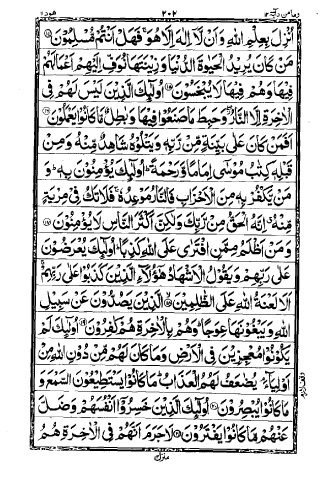 ومامن دآبة ١٢ ٢٠٢ هود ١١
اُنْزِلَ بِعِلْمِ اللّٰهِ وَاَنْ لَّاۤ اِلٰهَ اِلَّا هُوَ ۚ فَهَلْ اَنْتُمْ مُّسْلِمُوْنَ ۝۱۴
مَنْ كَانَ يُرِيْدُ الْحَيٰوةَ الدُّنْيَا وَزِيْنَتَهَا نُوَفِّ اِلَيْهِمْ اَعْمَالَهُمْ
فِيْهَا وَهُمْ فِيْهَا لَا يُبْخَسُوْنَ ۝۱۵ اُولٰٓئِكَ الَّذِيْنَ لَيْسَ لَهُمْ فِي
الْاٰخِرَةِ اِلَّا النَّارُ ۖ وَحَبِطَ مَا صَنَعُوْا فِيْهَا وَبٰطِلٌ مَّا كَانُوْا يَعْمَلُوْنَ ۝۱۶
اَفَمَنْ كَانَ عَلٰى بَيِّنَةٍ مِّنْ رَّبِّهٖ وَيَتْلُوْهُ شَاهِدٌ مِّنْهُ وَمِنْ
قَبْلِهٖ كِتٰبُ مُوْسٰۤى اِمَامًا وَّرَحْمَةً ؕ اُولٰٓئِكَ يُؤْمِنُوْنَ بِهٖ ؕ وَ
مَنْ يَّكْفُرْ بِهٖ مِنَ الْاَحْزَابِ فَالنَّارُ مَوْعِدُهٗ ۚ فَلَا تَكُ فِيْ مِرْيَةٍ
مِّنْهُ ۗ اِنَّهُ الْحَقُّ مِنْ رَّبِّكَ وَلٰكِنَّ اَكْثَرَ النَّاسِ لَا يُؤْمِنُوْنَ ۝۱۷
وَمَنْ اَظْلَمُ مِمَّنِ افْتَرٰى عَلَى اللّٰهِ كَذِبًا ؕ اُولٰٓئِكَ يُعْرَضُوْنَ
عَلٰى رَبِّهِمْ وَيَقُوْلُ الْاَشْهَادُ هٰۤؤُلَآءِ الَّذِيْنَ كَذَبُوْا عَلٰى رَبِّهِمْ ۚ
اَلَا لَعْنَةُ اللّٰهِ عَلَى الظّٰلِمِيْنَ ۝۱۸ الَّذِيْنَ يَصُدُّوْنَ عَنْ سَبِيْلِ
اللّٰهِ وَيَبْغُوْنَهَا عِوَجًا ؕ وَهُمْ بِالْاٰخِرَةِ هُمْ كٰفِرُوْنَ ۝۱۹ اُولٰٓئِكَ لَمْ
يَكُوْنُوْا مُعْجِزِيْنَ فِي الْاَرْضِ وَمَا كَانَ لَهُمْ مِّنْ دُوْنِ اللّٰهِ مِنْ
اَوْلِيَآءَ ۘ يُضٰعَفُ لَهُمُ الْعَذَابُ ؕ مَا كَانُوْا يَسْتَطِيْعُوْنَ السَّمْعَ وَ
مَا كَانُوْا يُبْصِرُوْنَ ۝۲۰ اُولٰٓئِكَ الَّذِيْنَ خَسِرُوْۤا اَنْفُسَهُمْ وَضَلَّ
عَنْهُمْ مَّا كَانُوْا يَفْتَرُوْنَ ۝۲۱ لَا جَرَمَ اَنَّهُمْ فِي الْاٰخِرَةِ هُمُ
وقف لازم
منزل